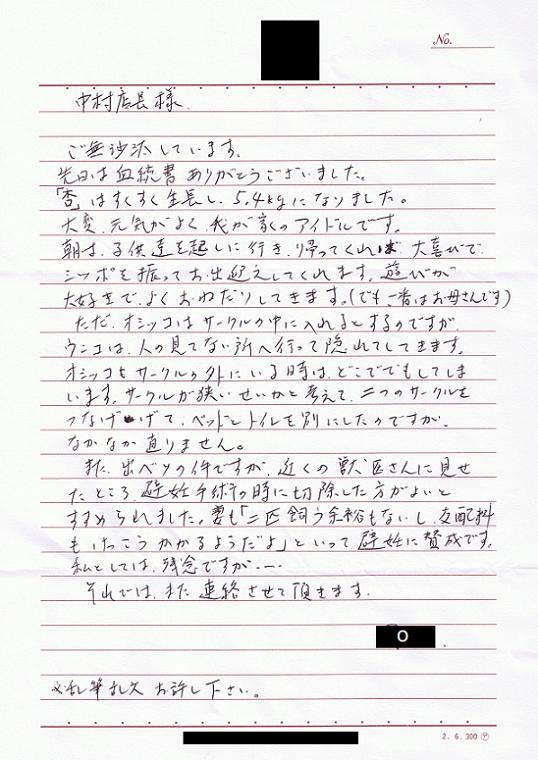 No.
中村店長様
ご無沙汰しています。
先日は血統書ありがとうございました。
「杏」はすくすく生長し、5.4kgになりました。
大変、元気がよく、我が家のアイドルです。
朝は、子供達を起しに行き、帰ってくれば、大喜びで、
シッポを振ってお出迎えしてくれます。遊びが
大好きで、よくおねだりしてきます。(でも一番はお母さんです)
ただ、オシッコはサークルの中に入れるとするのですが、
ウンコは、人の見てない所へ行って隠れてしてきます。
オシッコもサークルの外にいる時は、どこででもしてしま
います。サークルが狭いせいかと考えて、二つのサークルを
つなげげて、ベッドとトイレを別にしたのですが、
なかなか直りません。
また、出ベソの件ですが、近くの獣医さんに見せ
たところ、避妊手術の時に切除した方がよいと
すすめられました。妻も「二匹飼う余裕もないし、交配料
もけっこうかかるようだよ」といって避妊に賛成です。
私としては、残念ですが…
それでは、また連絡させて頂きます。
O
※乱筆乱文お許し下さい。
2.6.300 ア